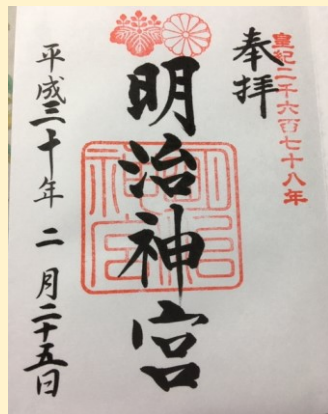 皇紀二千六百七十八年
奉拝
明治神宮
明治神宮
平成三十年二月二十五日